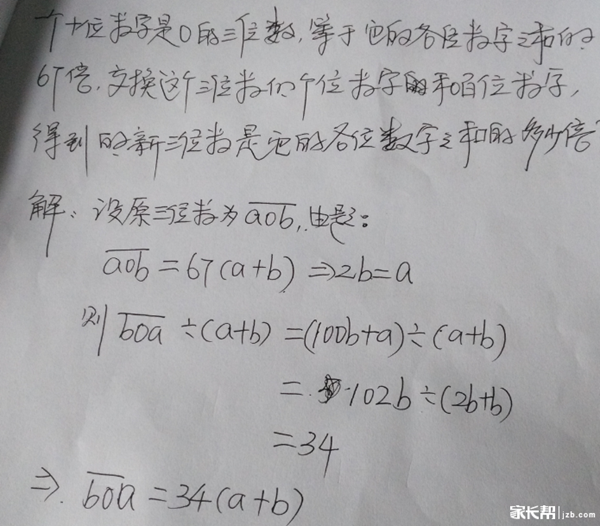 个十位数字是0的三位数,等于它的各位数字之和的
67倍,交换这个三位数的个位数字和百位数字,
得到的新三位数是它的各位数字之和的多少倍?
解:设原三位数为a0b,由题:
a0b=67(a+b)⇒2b=a
则b0a÷(a+b)=(100b+a)÷(a+b)
=102b÷(2b+b)
=34
⇒.b0a=34(a+b)
家长帮|jzb.com